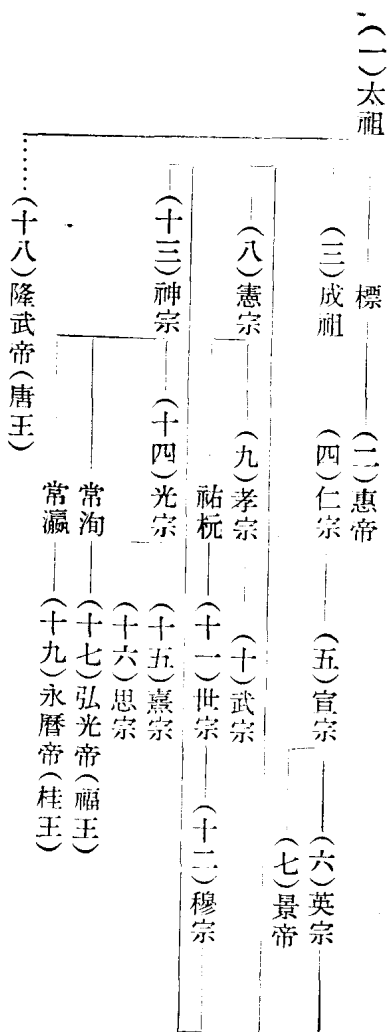 (一)太祖
標
(二)惠帝
(三)成祖
(四)仁宗
(五)宣宗
(六)英宗
(七)景帝
(八)憲宗
(九)孝宗
(十)武宗
祐杬
(十一)世宗
(十二)穆宗
(十三)神宗
(十四)光宗
(十五)熹宗
(十六)思宗
常洵
(十七)弘光帝(福王)
常瀛
(十九)永曆帝(桂王)
(十八)隆武帝(唐王)